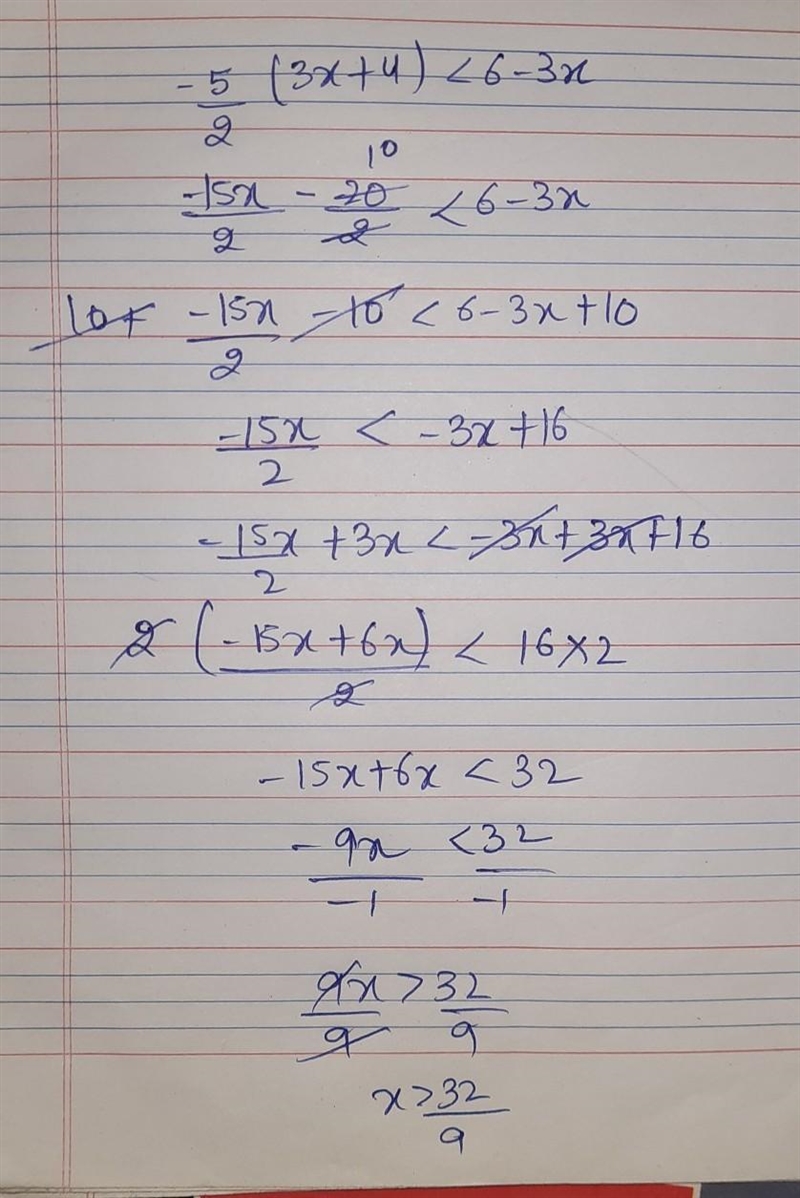 -5/2 (3x+4) < 6-3x
10
-15x/2 - 20/2 < 6-3x
10+ -15x/2 -10 < 6-3x+10
-15x/2 < -3x+16
-15x/2 +3x < -3x+3x+16
2 (-15x+6x)/2 < 16×2
-15x+6x < 32
-9x/-1 < 32/-1
9x/9 > 32/9
x > 32/9